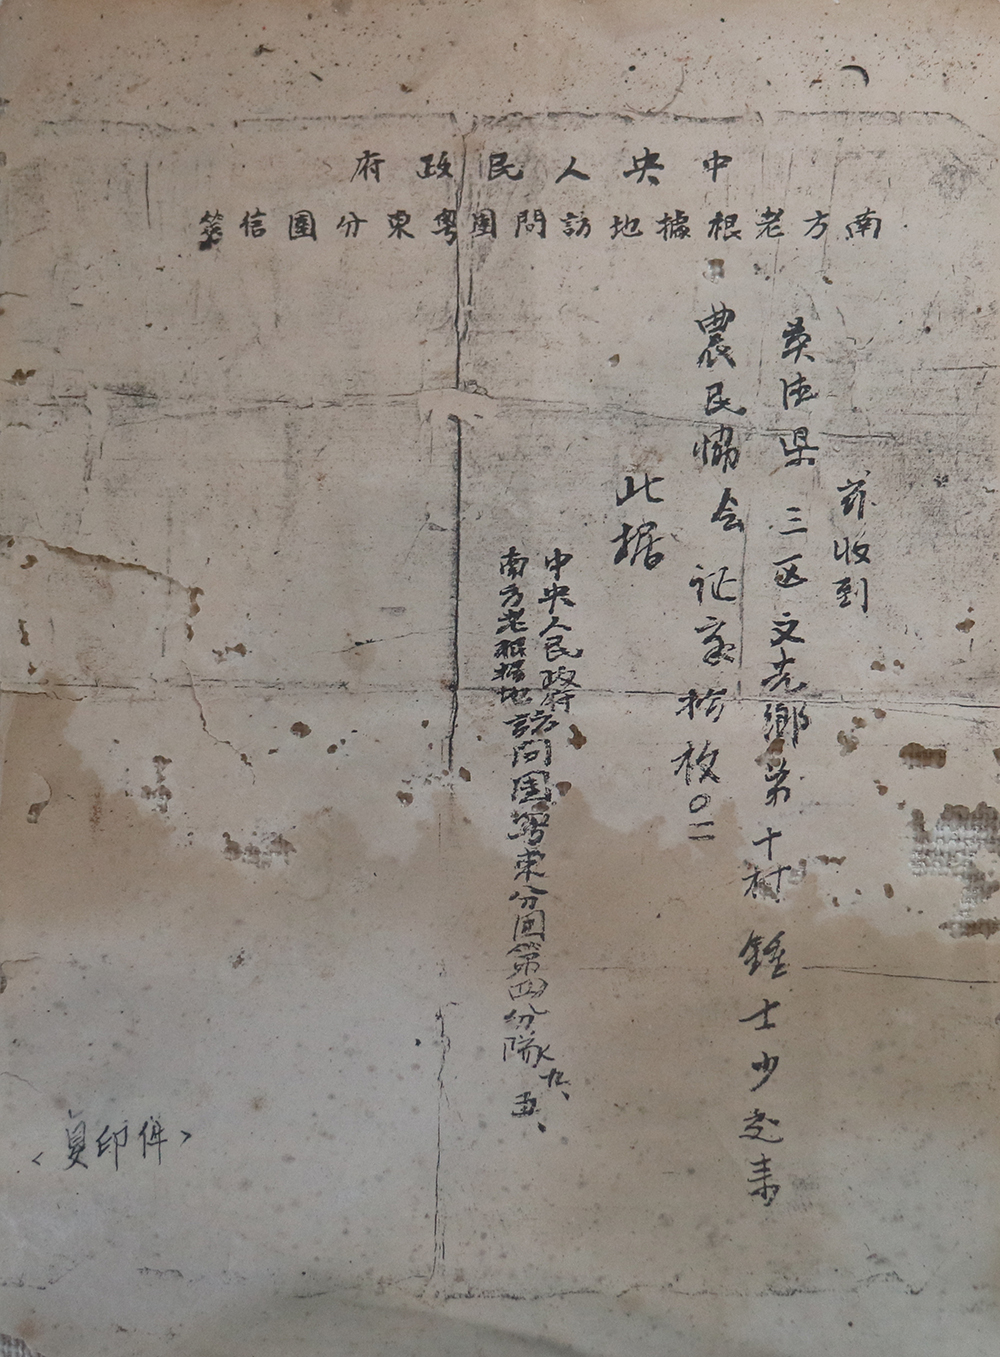 中央人民政府
南方老根據地訪問團粤東分團信箋
兹收到
英德县三区文光鄉第十村鍾士少交来
農民協会证章拾枚〇二
此据
中央人民政府
南方老根据地訪问团粤东分团第四分隊
九、
〈复印件〉